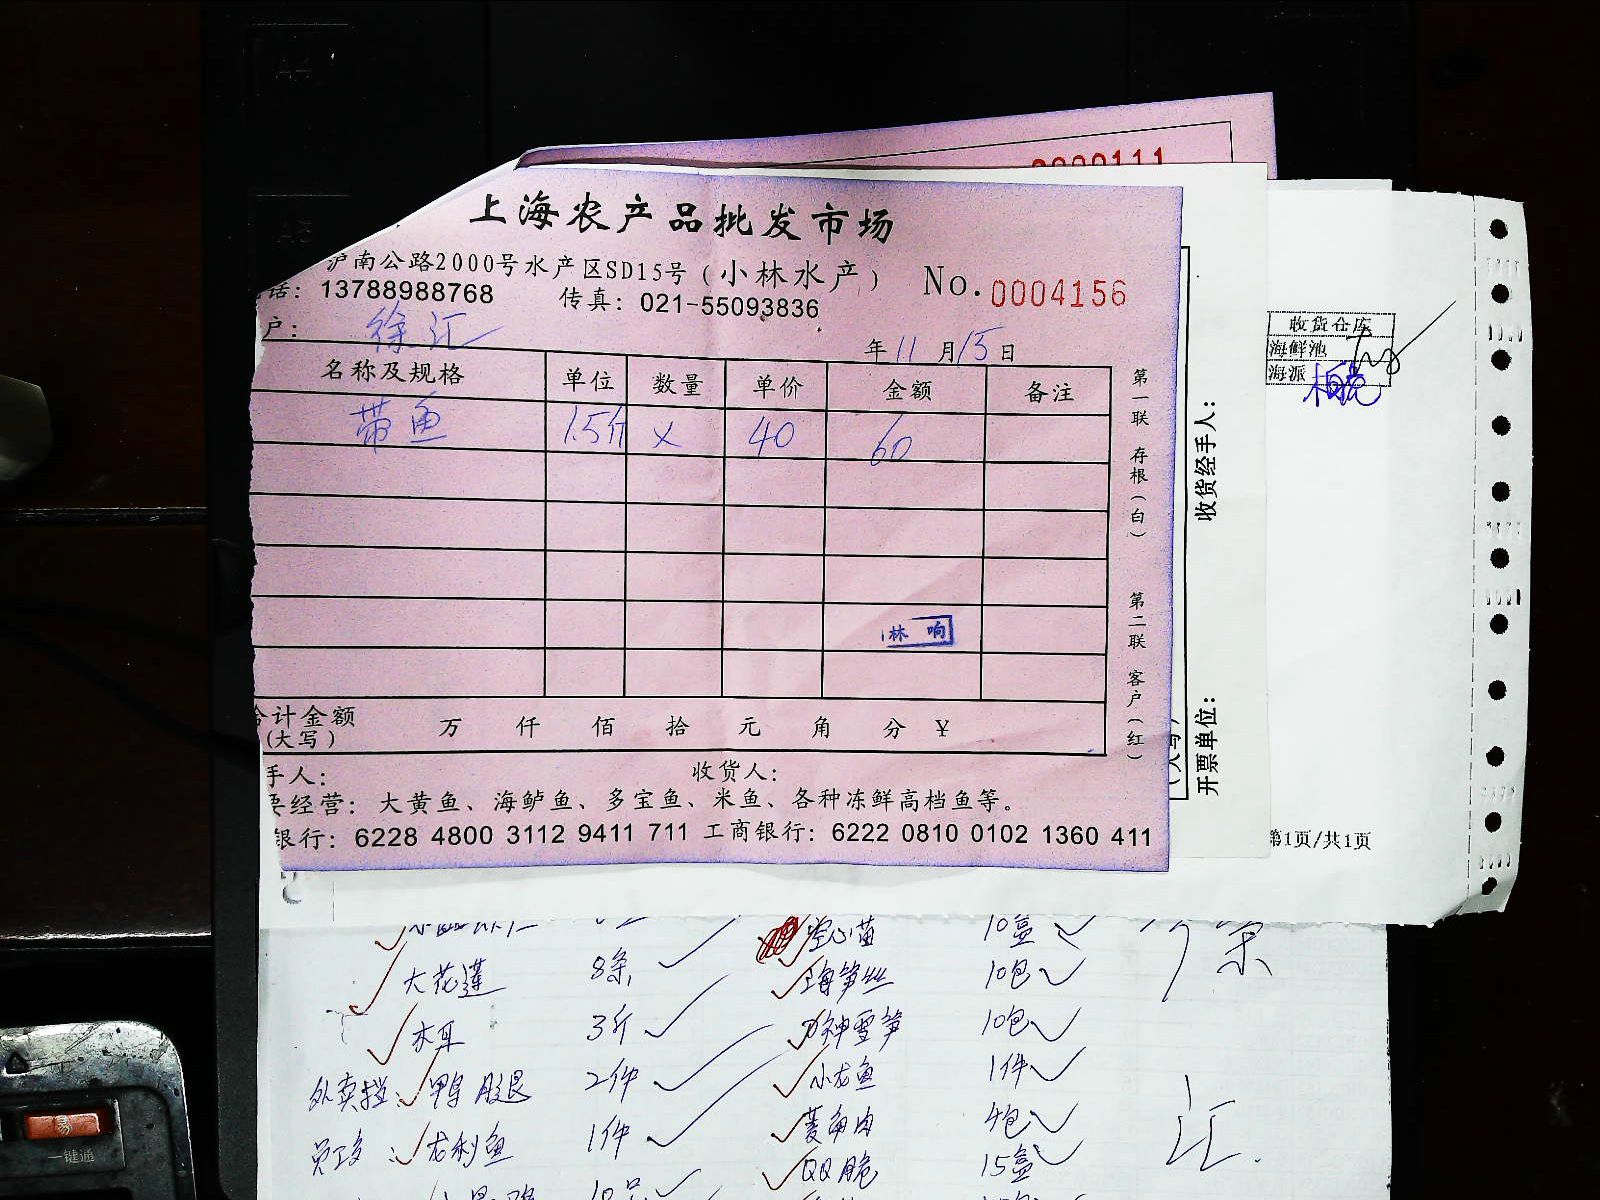 0000111
上海农产品批发市场
沪南公路2000号水产区SD15号(小林水产)
No.0004156
话: 13788988768 传真: 021-55093836
户: 徐汇
年 11 月 15 日
名称及规格 单位 数量 单价 金额 备注
带鱼 1.5斤 × 40 60
林响
合计金额(大写) 万 仟 佰 拾 元 角 分 ¥
手人: 收货人:
要经营: 大黄鱼、海鲈鱼、多宝鱼、米鱼、各种冻鲜高档鱼等。
银行: 6228 4800 3112 9411 711 工商银行: 6222 0810 0102 1360 411
第一联 存根(白)
第二联 客户(红)
收货经手人:
开票单位:
收货仓库
海鲜池
海派
第1页/共1页
空心苗 10盒
大花莲 8条 上海笋丝 10包
木耳 3斤 神雪笋 10包
外卖档: 鸭腿 2件 小龙鱼 1件
员工: 龙利鱼 1件 菱角肉 4包
QQ脆 15盒
徐
汇.
一键通
A4
A3